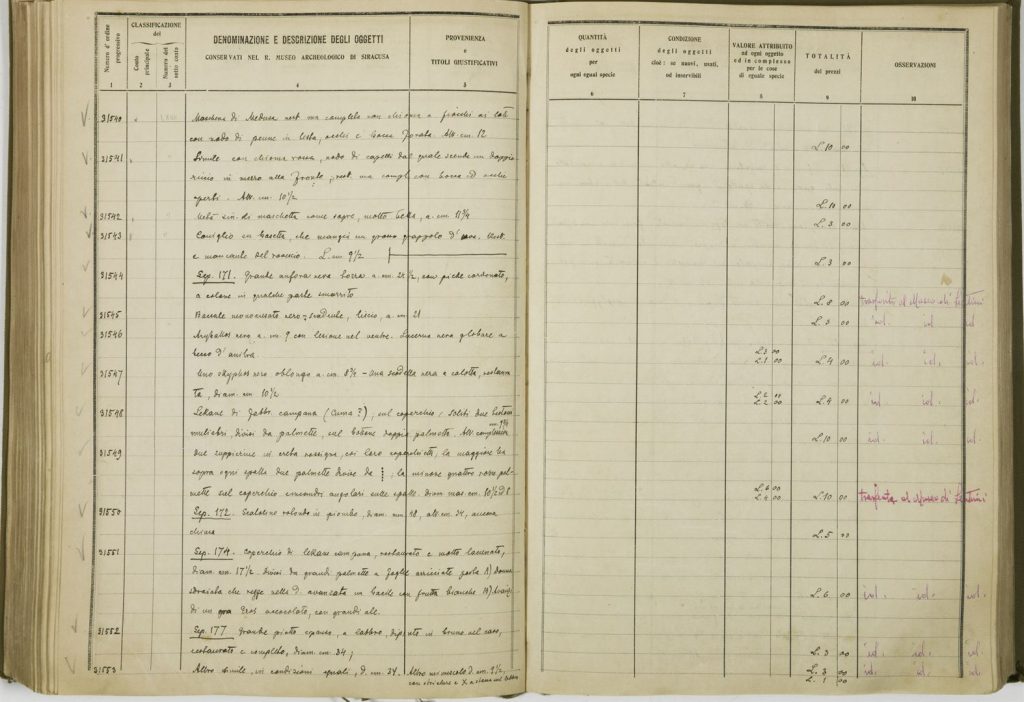 Numero d'ordine progressivo
CLASSIFICAZIONE
del
Conto principale
Numero del sotto conto
DENOMINAZIONE E DESCRIZIONE DEGLI OGGETTI
CONSERVATI NEL R. MUSEO ARCHEOLOGICO DI SIRACUSA
PROVENIENZA
e
TITOLI GIUSTIFICATIVI
1 2 3 4 5
31540 Maschera di Medusa rest. ma completa con chioma a fiocchi ai lati
con nodo di penne in testa, occhi e bocca forata. Alt. cm. 12
31541 Simile con chioma rossa, nodo di capelli dal quale scende un doppio
riccio in mezzo alla fronte; rest. ma compl. con bocca ed occhi
aperti. Alt. cm. 10 1/2
31542 Metà sin. di maschetta come sopra, molto bella, a. cm. 11 3/4
31543 Coniglio su basetta, che mangia un grosso grappolo d'uva. Rest.
e mancante del L. cm 9 1/2
31544 Sep. 171. Grande anfora nera a. cm. 2 1/2, con piede cordonato,
a colore in qualche parte smarrito
31545 Boccale nero a. cm 21
31546 Aryballos nero a. cm. 9 con lesione nel ventre. Lucerna nera globare a
becco d'anitra.
31547 Uno skyphos nero oblongo a. cm. 8 3/4 - Una scodella nera a calotta, restaura
ta, diam. cm. 10 1/2
31548 Lekane di fabbr. campana (Cuma?); sul coperchio i soliti due bustoni
muliebri, divisi da palmette, sul bottone doppia palmetta. Alt. complessiva
31549 Due zuppierine in creta rossigna, coi loro coperchietti; la maggiore ha
sopra ogni spalla due palmette divise da ; la minore quattro rosse pal-
mette sul coperchio angolari sulle spalle. diam. mas. cm. 10 1/2 8
31550 Sep. 172. Scatolino rotondo in piombo, diam. mm. 48, alt. cm. 34, ancora
chiusa
31551 Sep. 174. Coperchio di lekane campana, restaurato e molto lacunato,
diam. cm. 17 1/2. divisi da grandi palmette a foglie arricciate A) donna
sdraiata che regge nella d. avanzata un bacile con frutta bianche B)
di un gran Eros accoccolato, con grandi ali.
31552 Sep. 177 Grande piatto a labbro, dipinto in bruno nel cavo,
restaurato e completo, diam. cm. 34;
31553 Altro simile, in condizioni eguali, d. cm. 34. Altro D. cm. 9 1/2,
QUANTITÀ
degli oggetti
per
ogni egual specie
CONDIZIONE
degli oggetti
cioè: se nuovi, usati,
od inservibili
VALORE ATTRIBUITO
ad ogni oggetto
od in complesso
per le cose
di eguale specie
TOTALITÀ
dei prezzi
OSSERVAZIONI
6 7 8 9 10
L. 10 00
L. 10 00
L. 3 00
L. 3 00
L. 8 00 trasferito al Museo di Lentini
L. 3 00 id. id. id.
L. 3 00
L. 1 00 L. 4 00 id. id. id.
L. 2 00
L. 2 00 L. 4 00 id. id. id.
L. 10 00 id. id. id.
L. 6 00
L. 4 00 L. 10 00 trasferita al Museo di Lentini
L. 5 00
L. 6 00 id. id. id.
L. 3 00 id. id. id.
L. 3 00 id. id. id.
L. 1 00